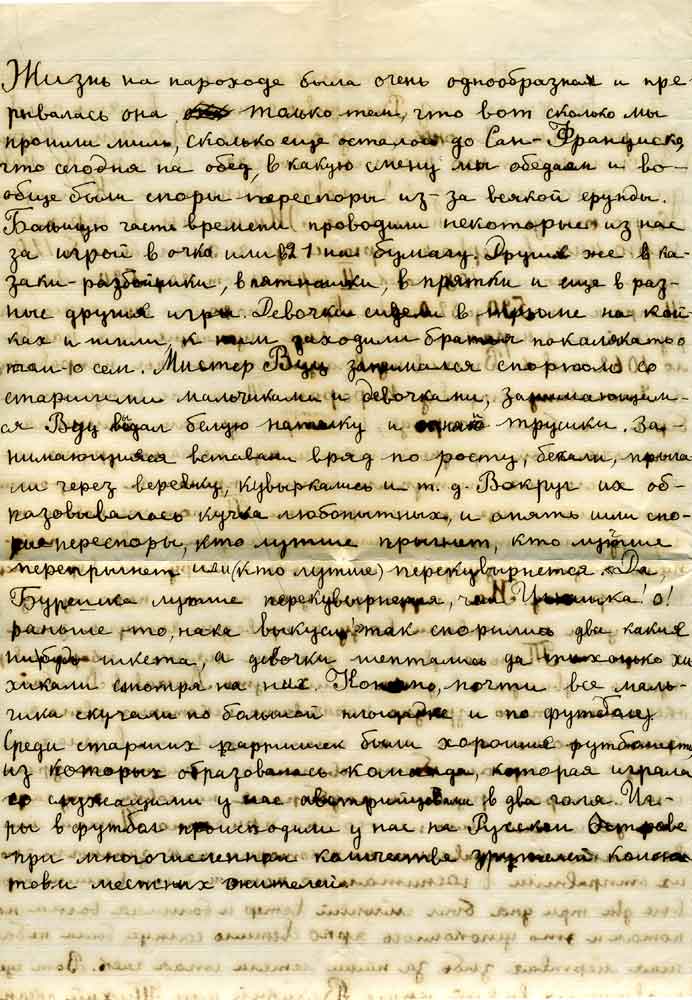 Жизнь на пароходе была очень однообразная и пре-
рывалась она только тем, что вот сколько мы
прошли миль, сколько еще осталось до Сан-Франциско,
что сегодня на обед, в какую смену мы обедаем и во-
обще были споры-переспоры из-за всякой ерунды.
Большую часть времени проводили некоторые из нас
за игрой в очко или в 21 на бумагу. Другия же в ка-
заки-разбойники, в пятнашки, в прятки и еще в раз-
ные другия игры. Девочки сидели в трюме на кой-
ках и шили, к ним заходили братья покалякать о
том-о сем. Мистер Вуд занимался спортом со
старшими мальчиками и девочками, занимающим-
ся Вуд выдал белую и трусики. За-
нимающиеся вставали вряд по росту, бегали, прыга
ли через веревку, кувыркались и т. д. Вокруг их об-
разовывалось кучка любопытных, и опять шли спо-
ры переспоры, кто лутше прыгнет, кто лутше
перепрыгнет или (кто лутше) перекувырнется. Да,
Бурешка лутше перекувырнется, чем ! о!
раньше то, на-ка выкуси! так спорились два какия
нибудь шкета, а девочки шептались да тихонько хи
хикали смотря на них. Конечно, почти все маль-
чика скучали по большой площадке и по футболу.
Среди старших парнишек были хорошие футболисты,
из которых образовалась команда, которая играла
со служащими у нас австрийцами в два голя. Иг-
ры в футбол происходили у нас на Русском Острове
при многочисленном количестве зрителей колонис
тов и местных жителей.